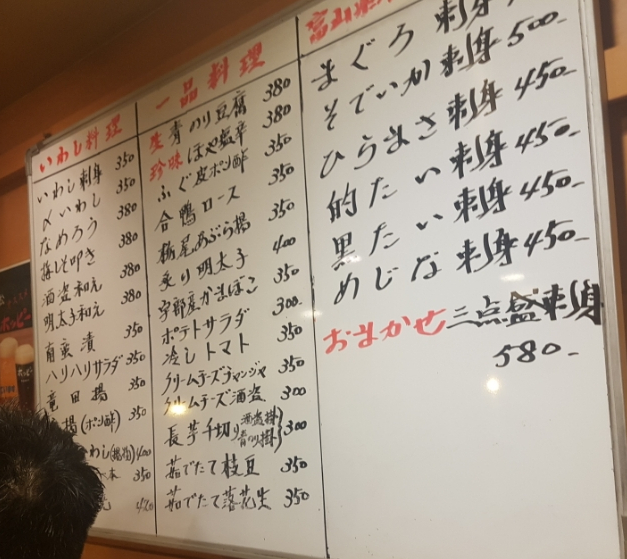 いわし料理
いわし刺身 350
〆いわし 350
なめろう 380
梅しそ叩き 380
酒盗和え 380
明太子和え 380
南蛮漬 350
ハリハリサラダ 350
竜田揚 350
揚(ポン酢) 350
わし 400
350
一品料理
生青のり豆腐 380
珍味ほや塩辛 380
ふぐ皮ポン酢 350
合鴨ロース 350
栃尾あぶら揚 350
炙り明太子 400
宇部産かまぼこ 350
ポテトサラダ 300
冷しトマト 350
クリームチーズチャンジャ 350
クリームチーズ酒盗 300
長芋千切り(酒盗掛 青のり掛) 300
茹でたて枝豆 350
茹でたて落花生 350
富山
まぐろ刺身
そでいか刺身 500-
ひらまさ刺身 450-
的たい刺身 450-
黒たい刺身 450-
めじな刺身 450-
おまかせ三点盛刺身
580-